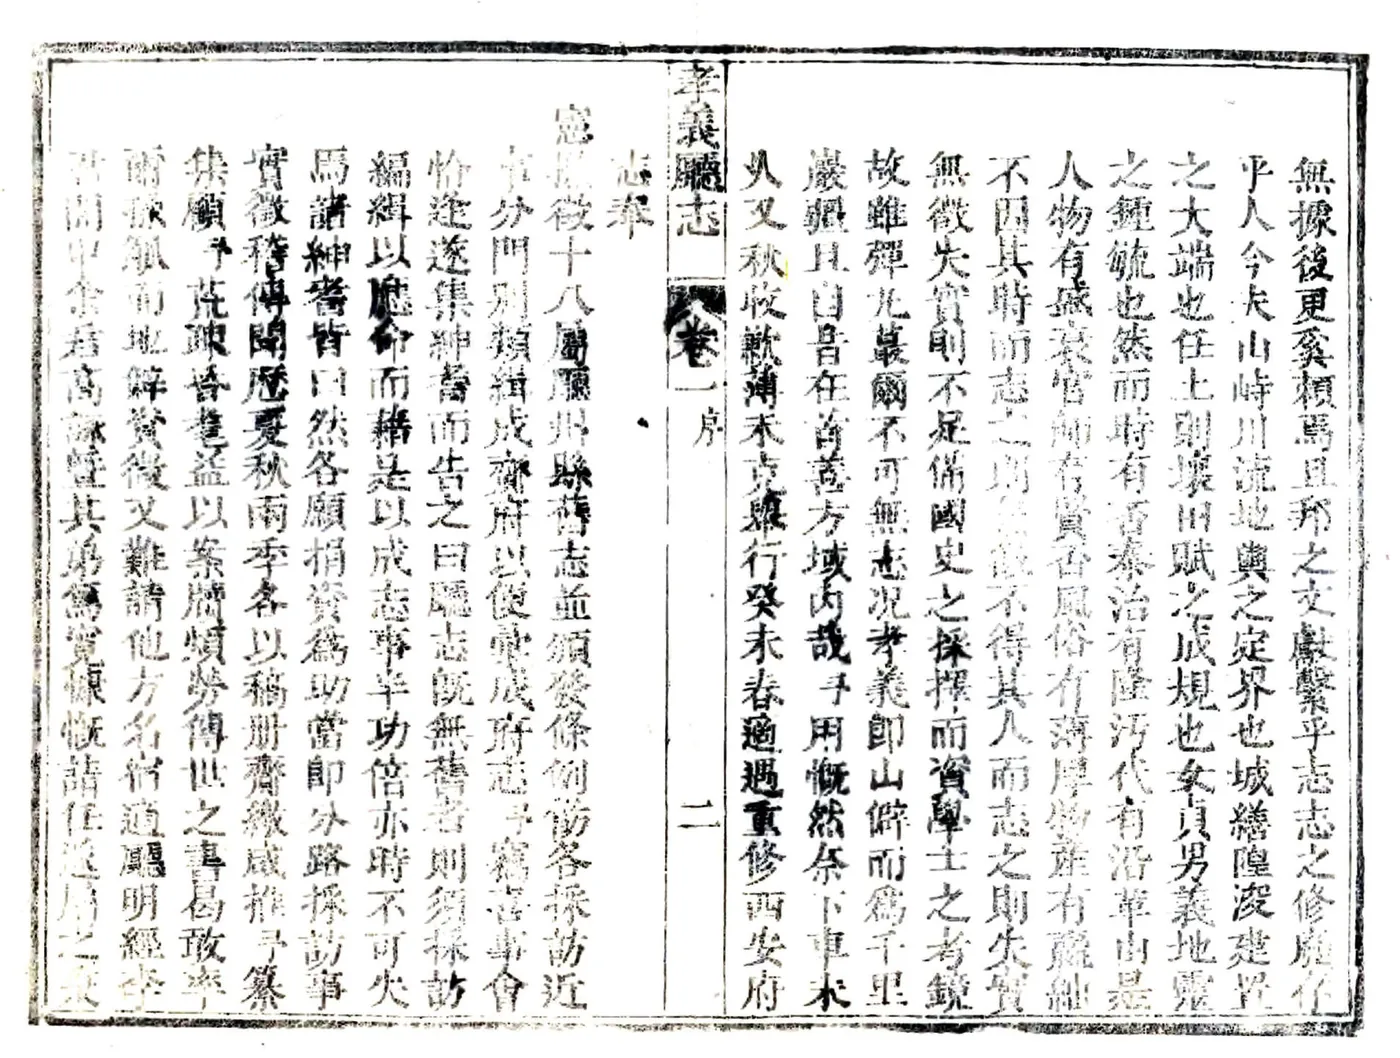 無據後更奚賴焉且邦之文獻繫乎志志之修廢存
乎人今夫山峙川流地輿之定界也城繕隍浚建置
之大端也任土則壤田賦之成規也女貞男義地靈
之鍾毓也然而時有否泰治有隆汚代有沿革由是
人物有盛衰官師有賢否風俗有薄厚物產有蕃絀
不因其時而志之則無徵不得其人而志之則失實
無徵失實則不足備國史之採擇而資學士之考鏡
故雖彈丸蕞爾不可無志况孝義卽山僻而爲千里
巖疆且自昔在首善方域內哉予用慨然奈下車未
又秋收歉薄未克舉行癸未春適遇重修西安府
孝義廳志
卷一
序
二
志奉
憲檄徵十八屬廳州縣舊志並頒發條例飭各採訪近
事分門別類緝成齎府以便彙成府志予竊喜事會
恰逢遂集紳耆而告之曰廳志旣無舊者則須採訪
編緝以應命而藉是以成志事半功倍亦時不可失
焉諸紳耆皆曰然各願捐資爲助當卽分路採訪事
實徵稽傳聞歷夏秋兩季各以稿册齊繳咸推予纂
集顧予荒疎昏耄益以案牘煩勞傳世之書曷敢率
爾操觚而地僻資微又難請他方名宿適廳明經李
君開甲余君高詠曁其弟篤實慷慨請任遂局之東